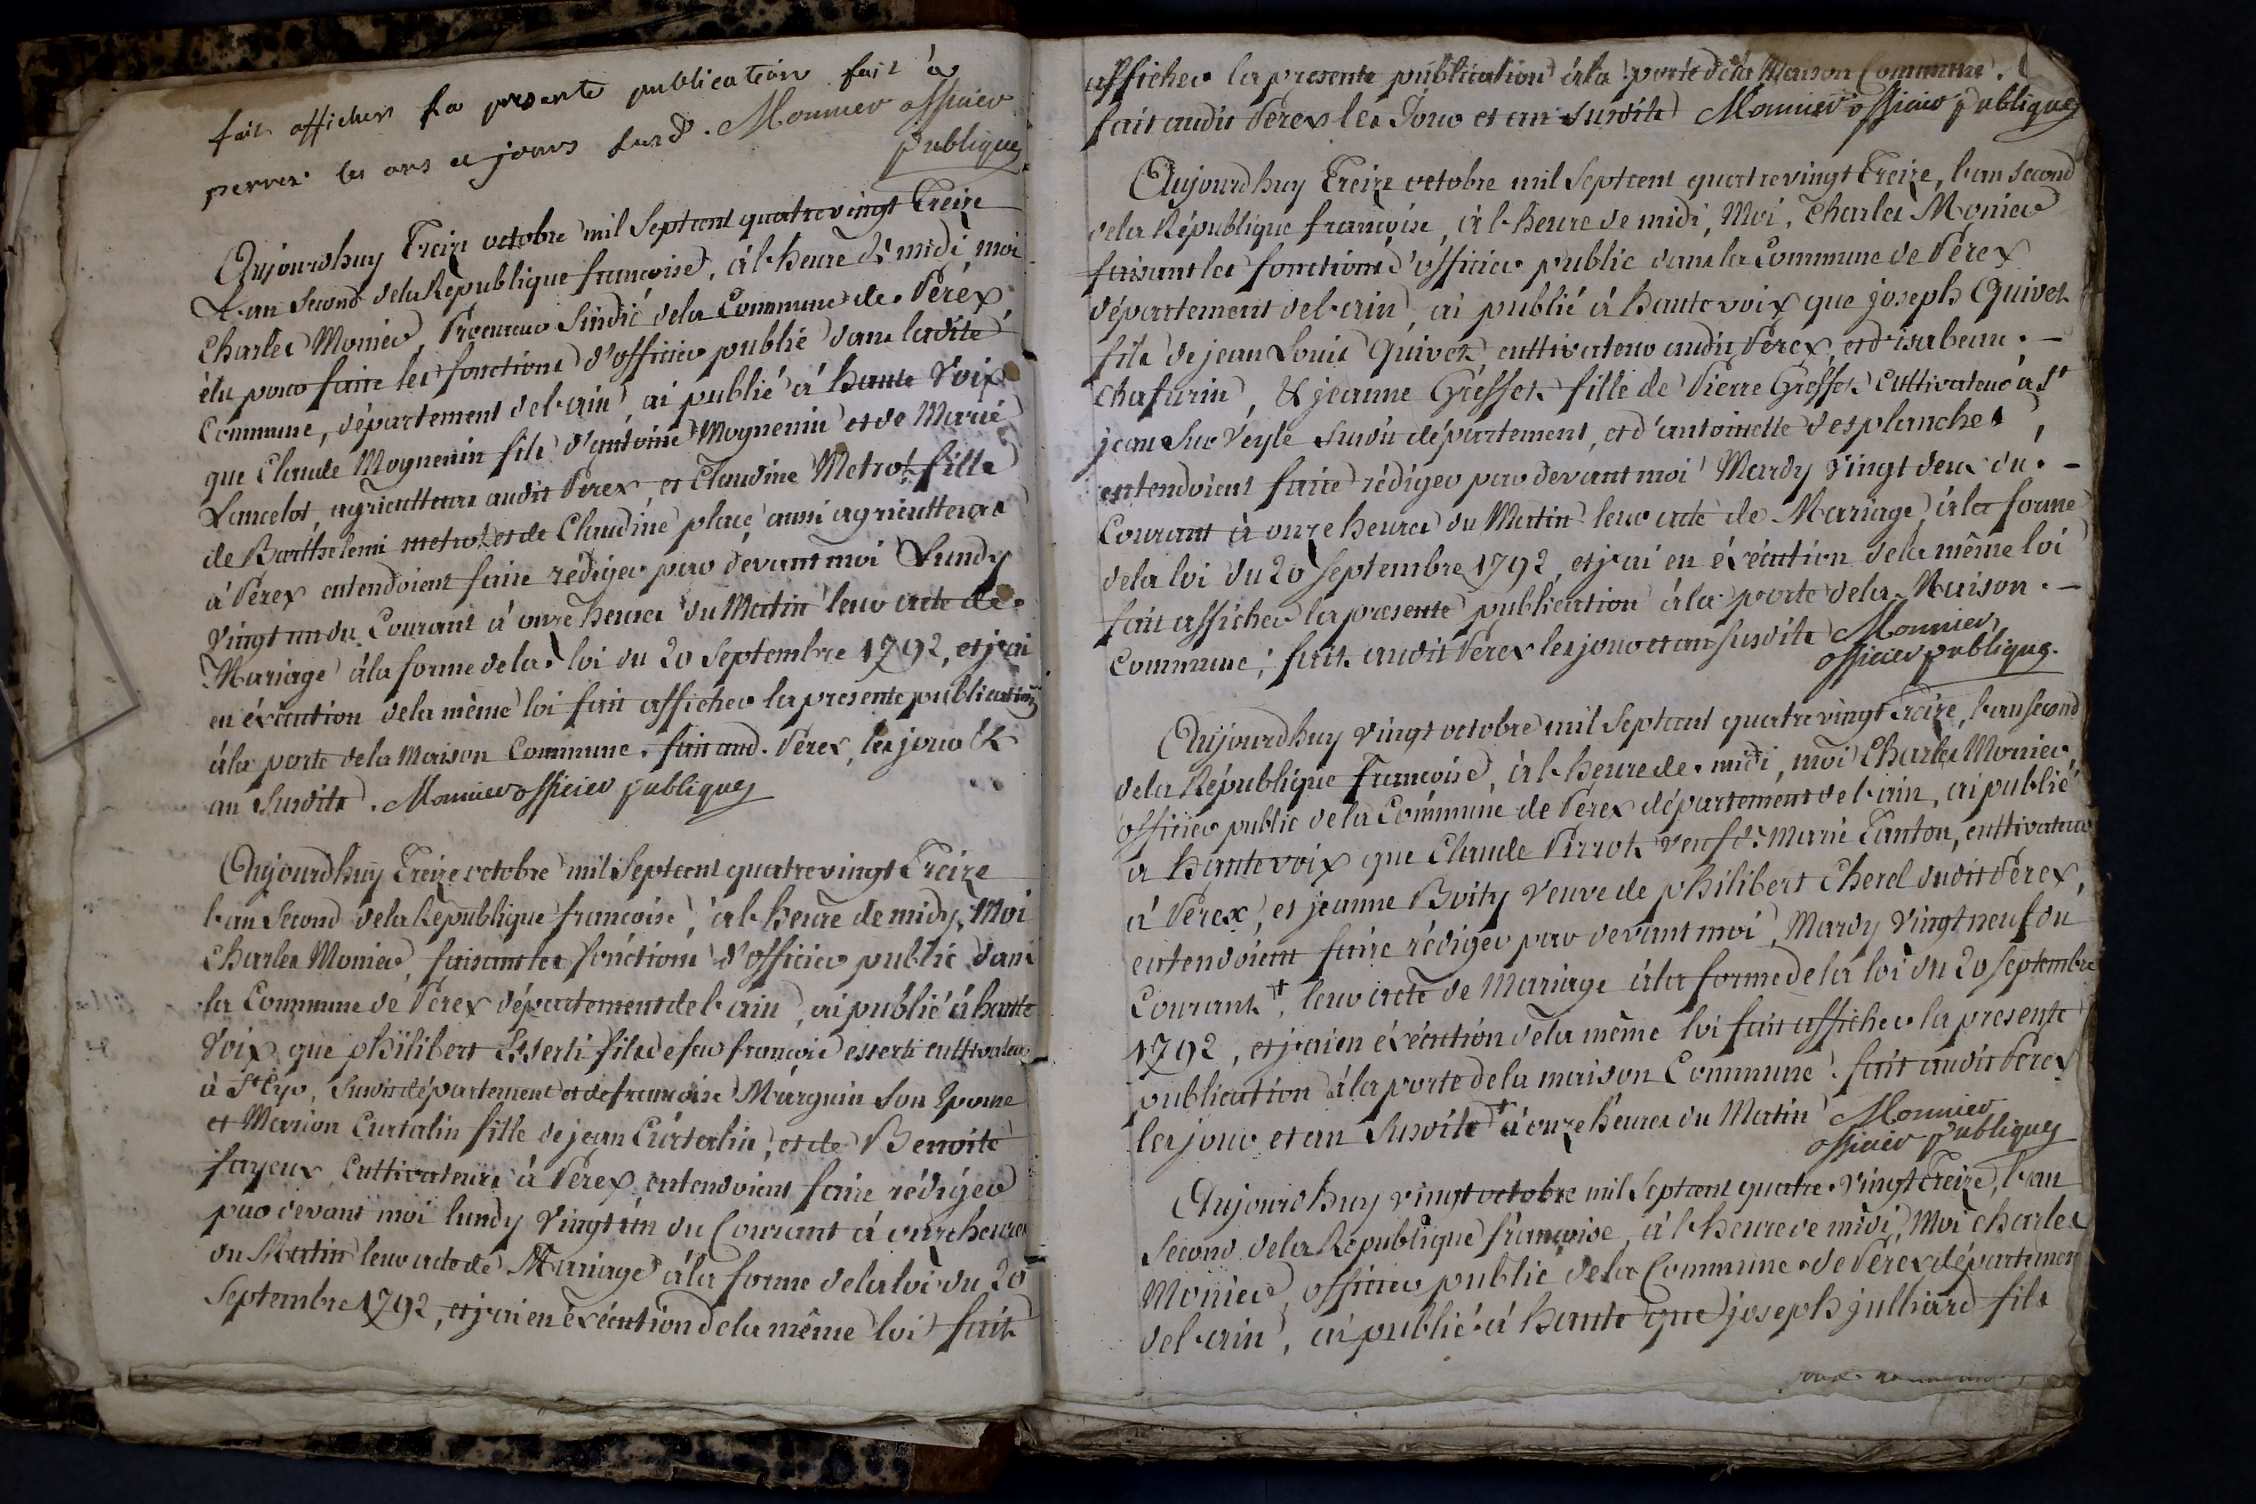 fait afficher la presente publication fait à
perrex les ans et jours susd. Monnier officier
publique
Aujourdhuy Treize octobre mil Septcent quatrevingt Treize
L'an Second dela Republique françoise, à l'heure de midi, moi
Charles Monier, Procureur Sindic dela Commune de Péréx
élu pour faire les fonctions d'officier public dans ladite
Commune, département del'ain, ai publié à haute Voix
que Claude Mognenin fils d'antoine Mognenin et de Marie
Lancelot, agriculteurs audit Pérex, et Claudine Metrot fille
de Barthelemi metrot et de Claudine place aussi agriculteurs
à Pérex entendoient faire rédiger par devant moi Lundy
Vingt un du Courant à onze heures du Matin leur acte de
Mariage à la forme dela loi du 20 Septembre 1792, et j'ai
en éxécution dela même loi fait afficher la presente publication
àla porte dela Maison Commune. fait aud. Pérex, les jour &
an Susdits. Monnier officier publique
Aujourdhuy Treize octobre mil Septcent quatrevingt Treize
l'an Second dela Republique françoise, à l'heure de midy, Moi
Charles Monier, faisant les fonctions d'officier public dans
la Commune de Pérex département de l'ain, ai publié à haute
Voix que philibert Esserti fils de feu françois esserti cultivateur
à St Cyr, Susdit département et de françoise Marguin Son Epouse
et Marion Curtalin fille de jean Curtalin, et de Benoite
fayeux Cultivateurs à Pérex, entendoient faire rédiger
par devant moi lundy Vingt un du Courant à onze heures
du Matin leur acte de Mariage à la forme dela loi du 20
Septembre 1792, et j'ai en éxécution dela même loi fait
afficher la presente publication àla porte dela Maison Commune.
fait audit Perex les Jour et an Susdits Monnier officier publique
Aujourdhuy Treize octobre mil Septcent quatrevingt Treize, l'an second
dela République françoise, à l'heure de midi, Moi, Charles Monier
faisant les fonctions d'officier public dans la Commune de Pérex
département del'ain, ai publié à haute voix que joseph Quivet
fils de jean Louis Quivet cultivateur audit Pérex, et d'isabeau
Chafurin, & jeanne Greffet fille de Pierre Greffet Cultivateur à St
jean Sur Veyle Susdit département, et d'antoinette desplanches,
entendoient faire rédiger par devant moi Mardy Vingt deux du
Courant à onze heures du Matin leur acte de Mariage, à la forme
dela loi du 20 Septembre 1792, et j'ai en éxécution dela même loi
fait afficher la presente publication àla porte dela Maison
Commune; fait audit Pérex les jour et an Susdits Monnier
officier publique.
Aujourdhuy Vingt octobre mil Septcent quatrevingt Treize, l'an second
dela République Françoise, à l'heure de midi, moi Charles Monier,
officier public dela Commune de Pérex département de l'ain, ai publié
à haute voix que Claude Pirrot veuf de Marie Tanton, cultivateur
à Pérex, et jeanne Boity Veuve de philibert Cherel dudit Pérex,
entendoient faire rédiger par devant moi, Mardy Vingt neuf du
Courant +, leur acte de Mariage à la forme de la loi du 20 Septembre
1792, et j'ai en éxécution dela même loi fait afficher la presente
publication àla porte dela maison Commune. fait audit Pérex
les jour et an Susdits + à onze heures du Matin Monnier
officier publique
Aujourdhuy Vingt octobre mil Septcent quatre Vingt Treize, l'an
Second dela République françoise, à l'heure de midi, Moi Charles
Monier, officier public dela Commune de Pérex département
del'ain, ai publié à haute que joseph julliard fils